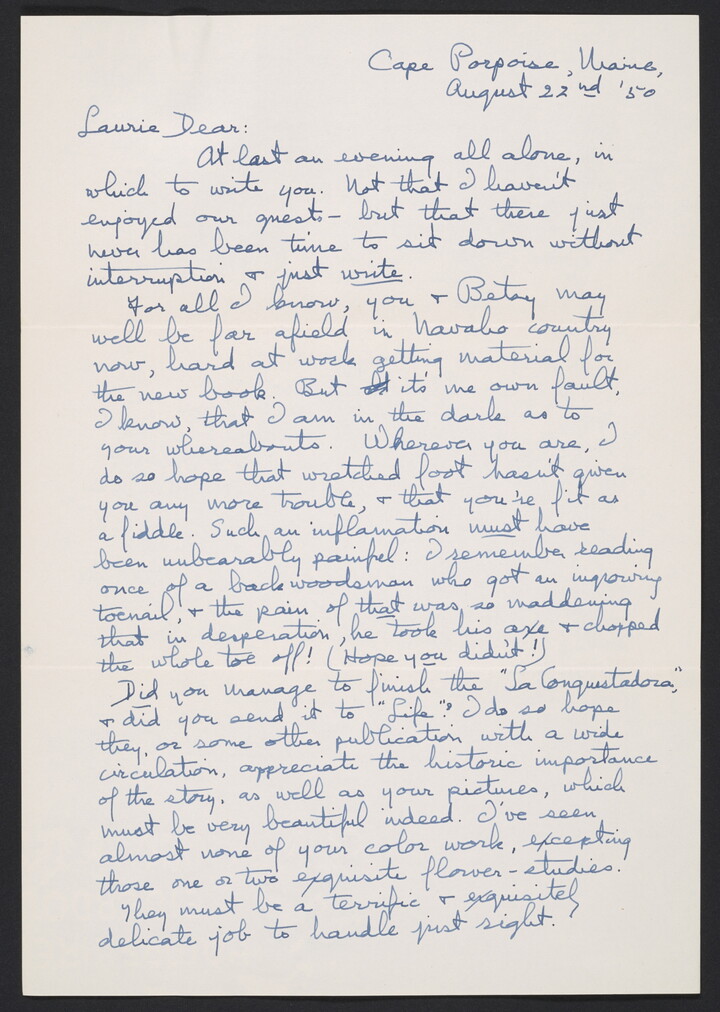 Cape Porpoise, Maine,
August 22nd '50
Laurie Dear:
At last an evening all alone, in
which to write you. Not that I haven't
enjoyed our guests - but that there just
never has been time to sit down without
interruption & just write.
For all I know, you & Betsy may
well be far afield in Navaho country
now, hard at work getting material for
the new book. But it's me own fault,
I know, that I am in the dark as to
your whereabouts. Wherever you are, I
do so hope that wretched foot hasn't given
you any more trouble, & that you're fit as
a fiddle. Such an inflamation must have
been unbearably painful: I remember reading
once of a backwoodsman who got an ingrowing
toenail, & the pain of that was so maddening
that in desperation, he took his axe & chopped
the whole toe off! (Hope you didn't!)
Did you manage to finish the "La Conquistadora",
& did you send it to "Life"? I do so hope
they, or some other publication with a wide
circulation, appreciate the historic importance
of the story, as well as your pictures, which
must be very beautiful indeed. I've seen
almost none of your color work, excepting
those one or two exquisite flower-studies.
They must be a terrific & exquisitely
delicate job to handle just right.